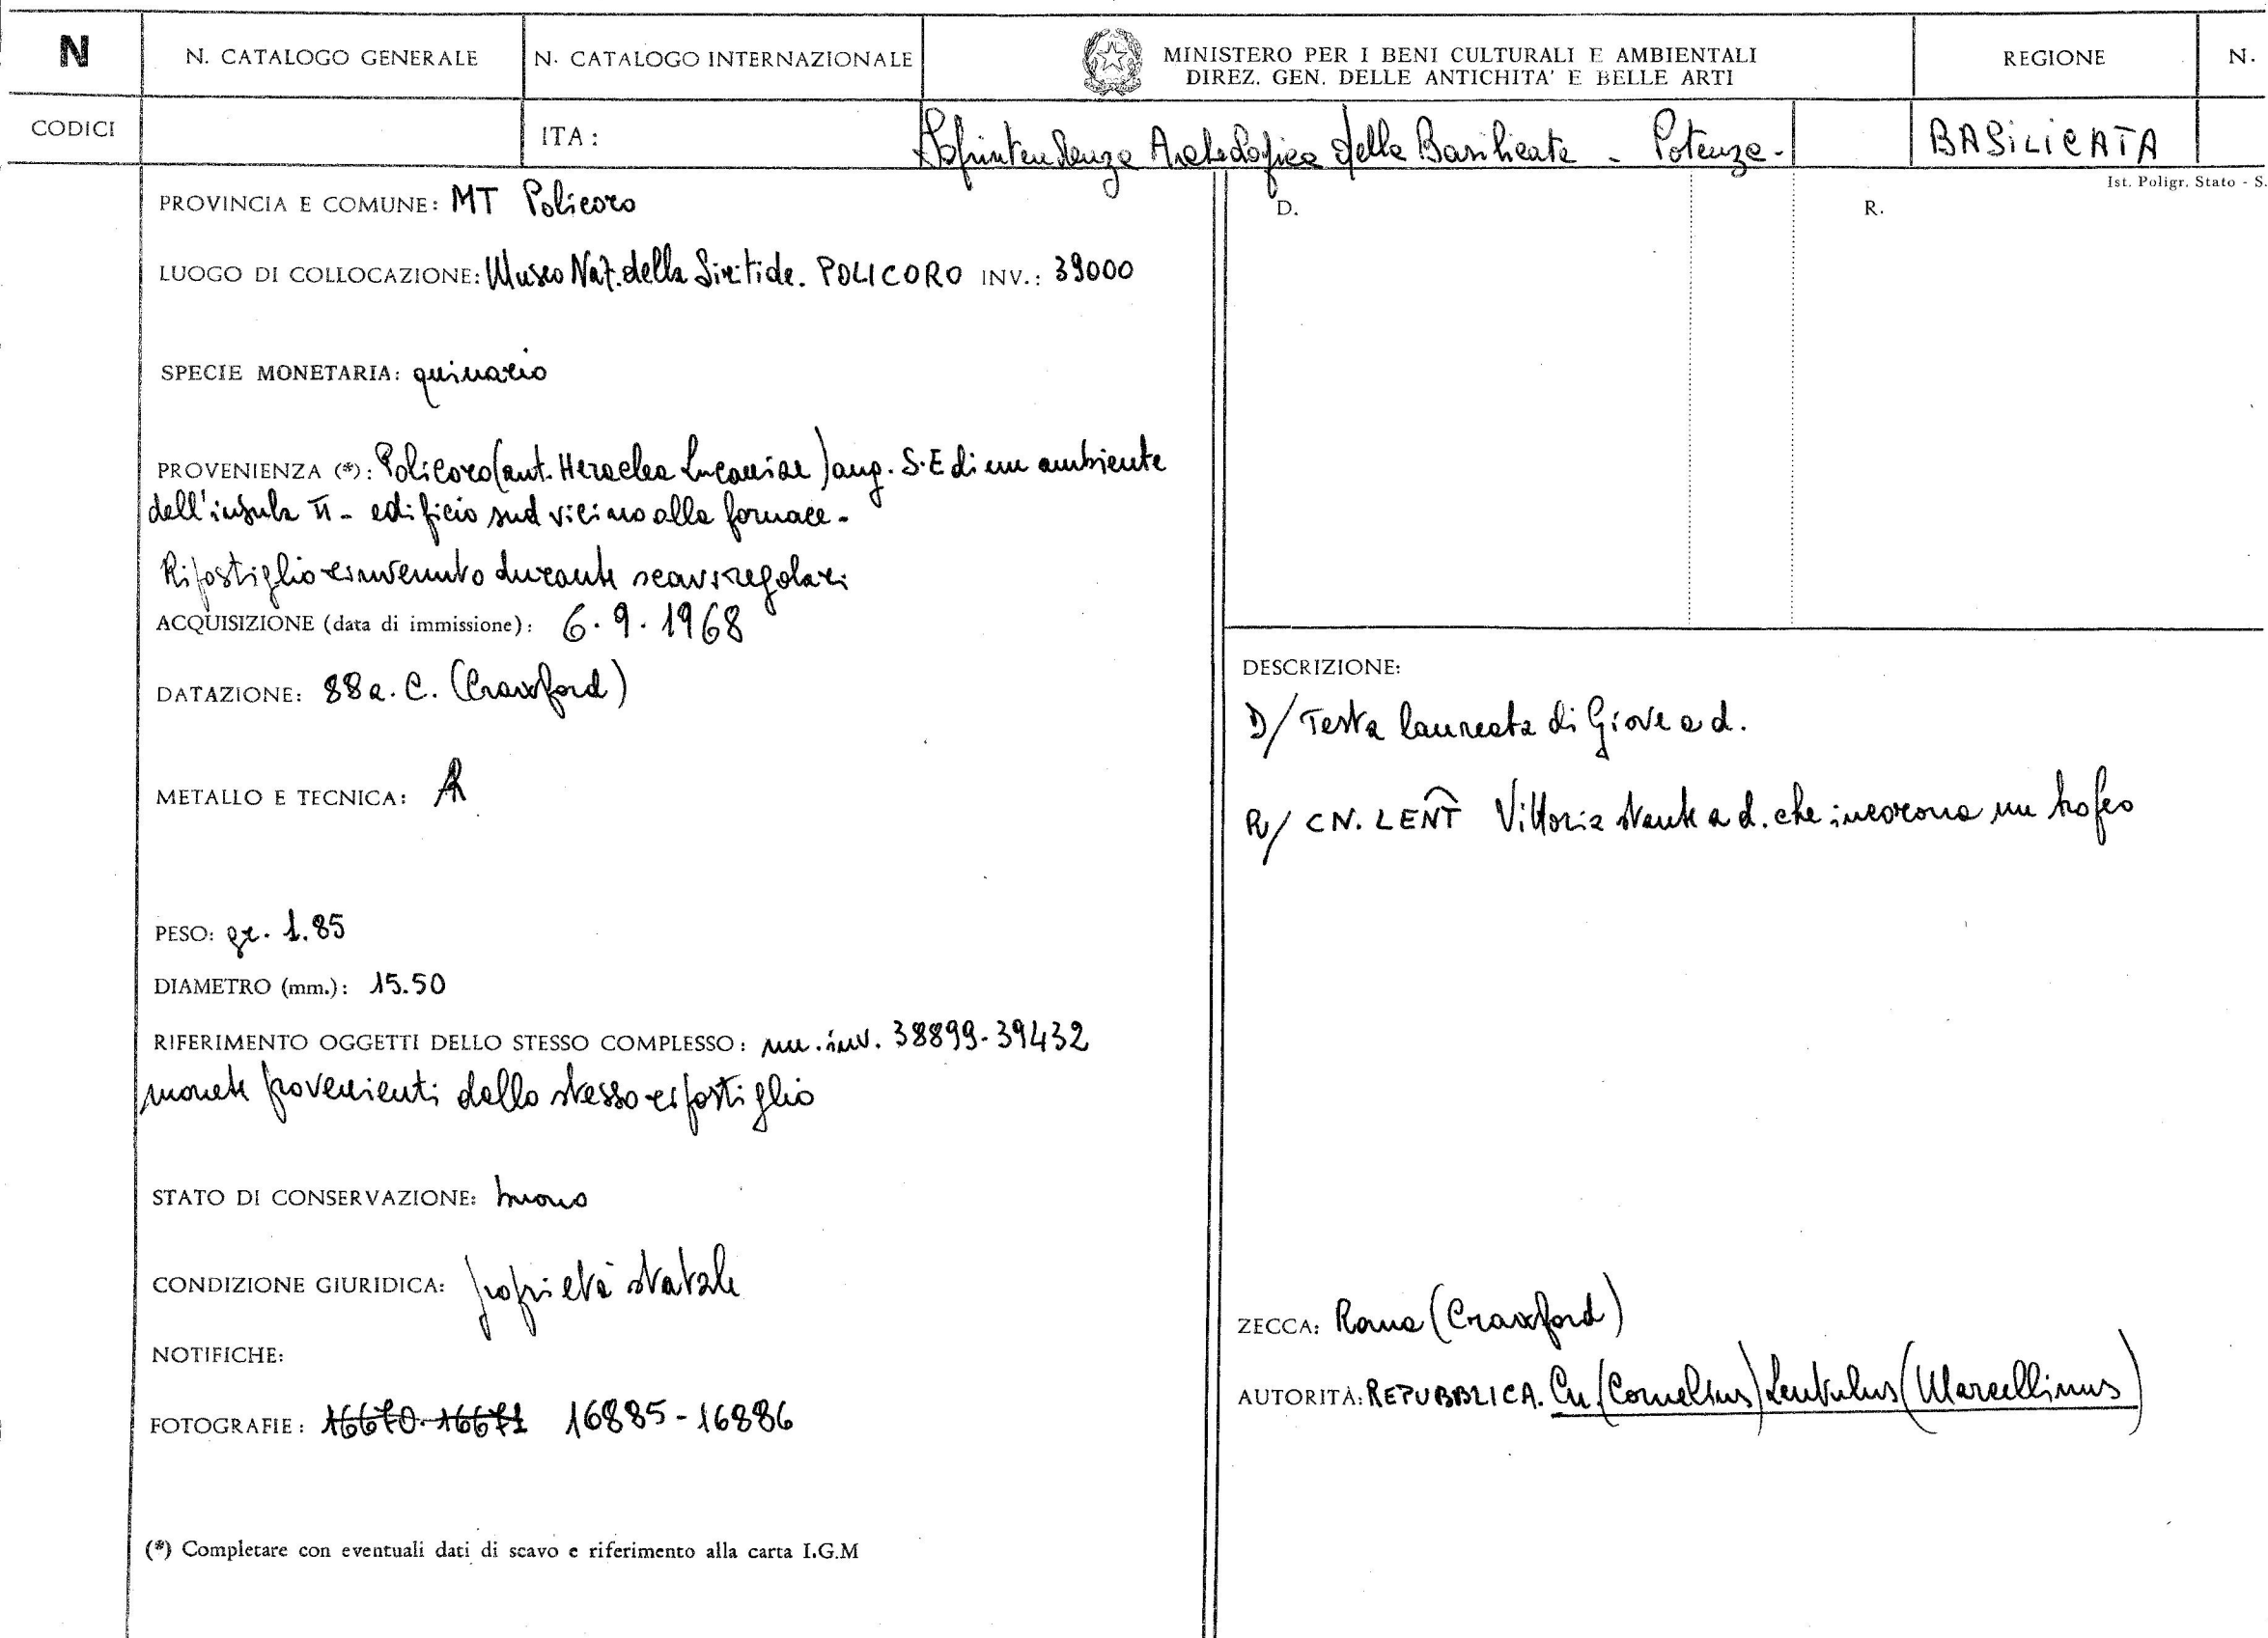 N
N. CATALOGO GENERALE
N. CATALOGO INTERNAZIONALE
MINISTERO PER I BENI CULTURALI E AMBIENTALI
DIREZ. GEN. DELLE ANTICHITA' E BELLE ARTI
REGIONE
N.
CODICI
ITA:
Soprintendenza Archeologica della Basilicata - Potenza -
BASILICATA
Ist. Poligr. Stato - S.
PROVINCIA E COMUNE: MT Policoro
D.
R.
LUOGO DI COLLOCAZIONE: Museo Naz. della Siritide. POLICORO INV.: 39000
SPECIE MONETARIA: quinario
PROVENIENZA (*): Policoro (ant. Heraclea Lucaniae) ang. S.E di un ambiente
dell'insula II - edificio sud vicino alla fornace -
Ripostiglio rinvenuto durante scavi regolari
ACQUISIZIONE (data di immissione): 6.9.1968
DATAZIONE: 88 a.C. (Crawford)
METALLO E TECNICA: AR
PESO: gr. 1.85
DIAMETRO (mm.): 15.50
RIFERIMENTO OGGETTI DELLO STESSO COMPLESSO: nn. inv. 38899-39432
monete provenienti dallo stesso ripostiglio
STATO DI CONSERVAZIONE: buono
CONDIZIONE GIURIDICA: proprietà statale
NOTIFICHE:
FOTOGRAFIE: 16670-16671 16885-16886
(*) Completare con eventuali dati di scavo e riferimento alla carta I.G.M
DESCRIZIONE:
D/ Testa laureata di Giove a d.
R/ CN. LENT Vittoria stante a d. che incorona un trofeo
ZECCA: Roma (Crawford)
AUTORITÀ: REPUBBLICA. Cn. (Cornelius) Lentulus (Marcellinus)